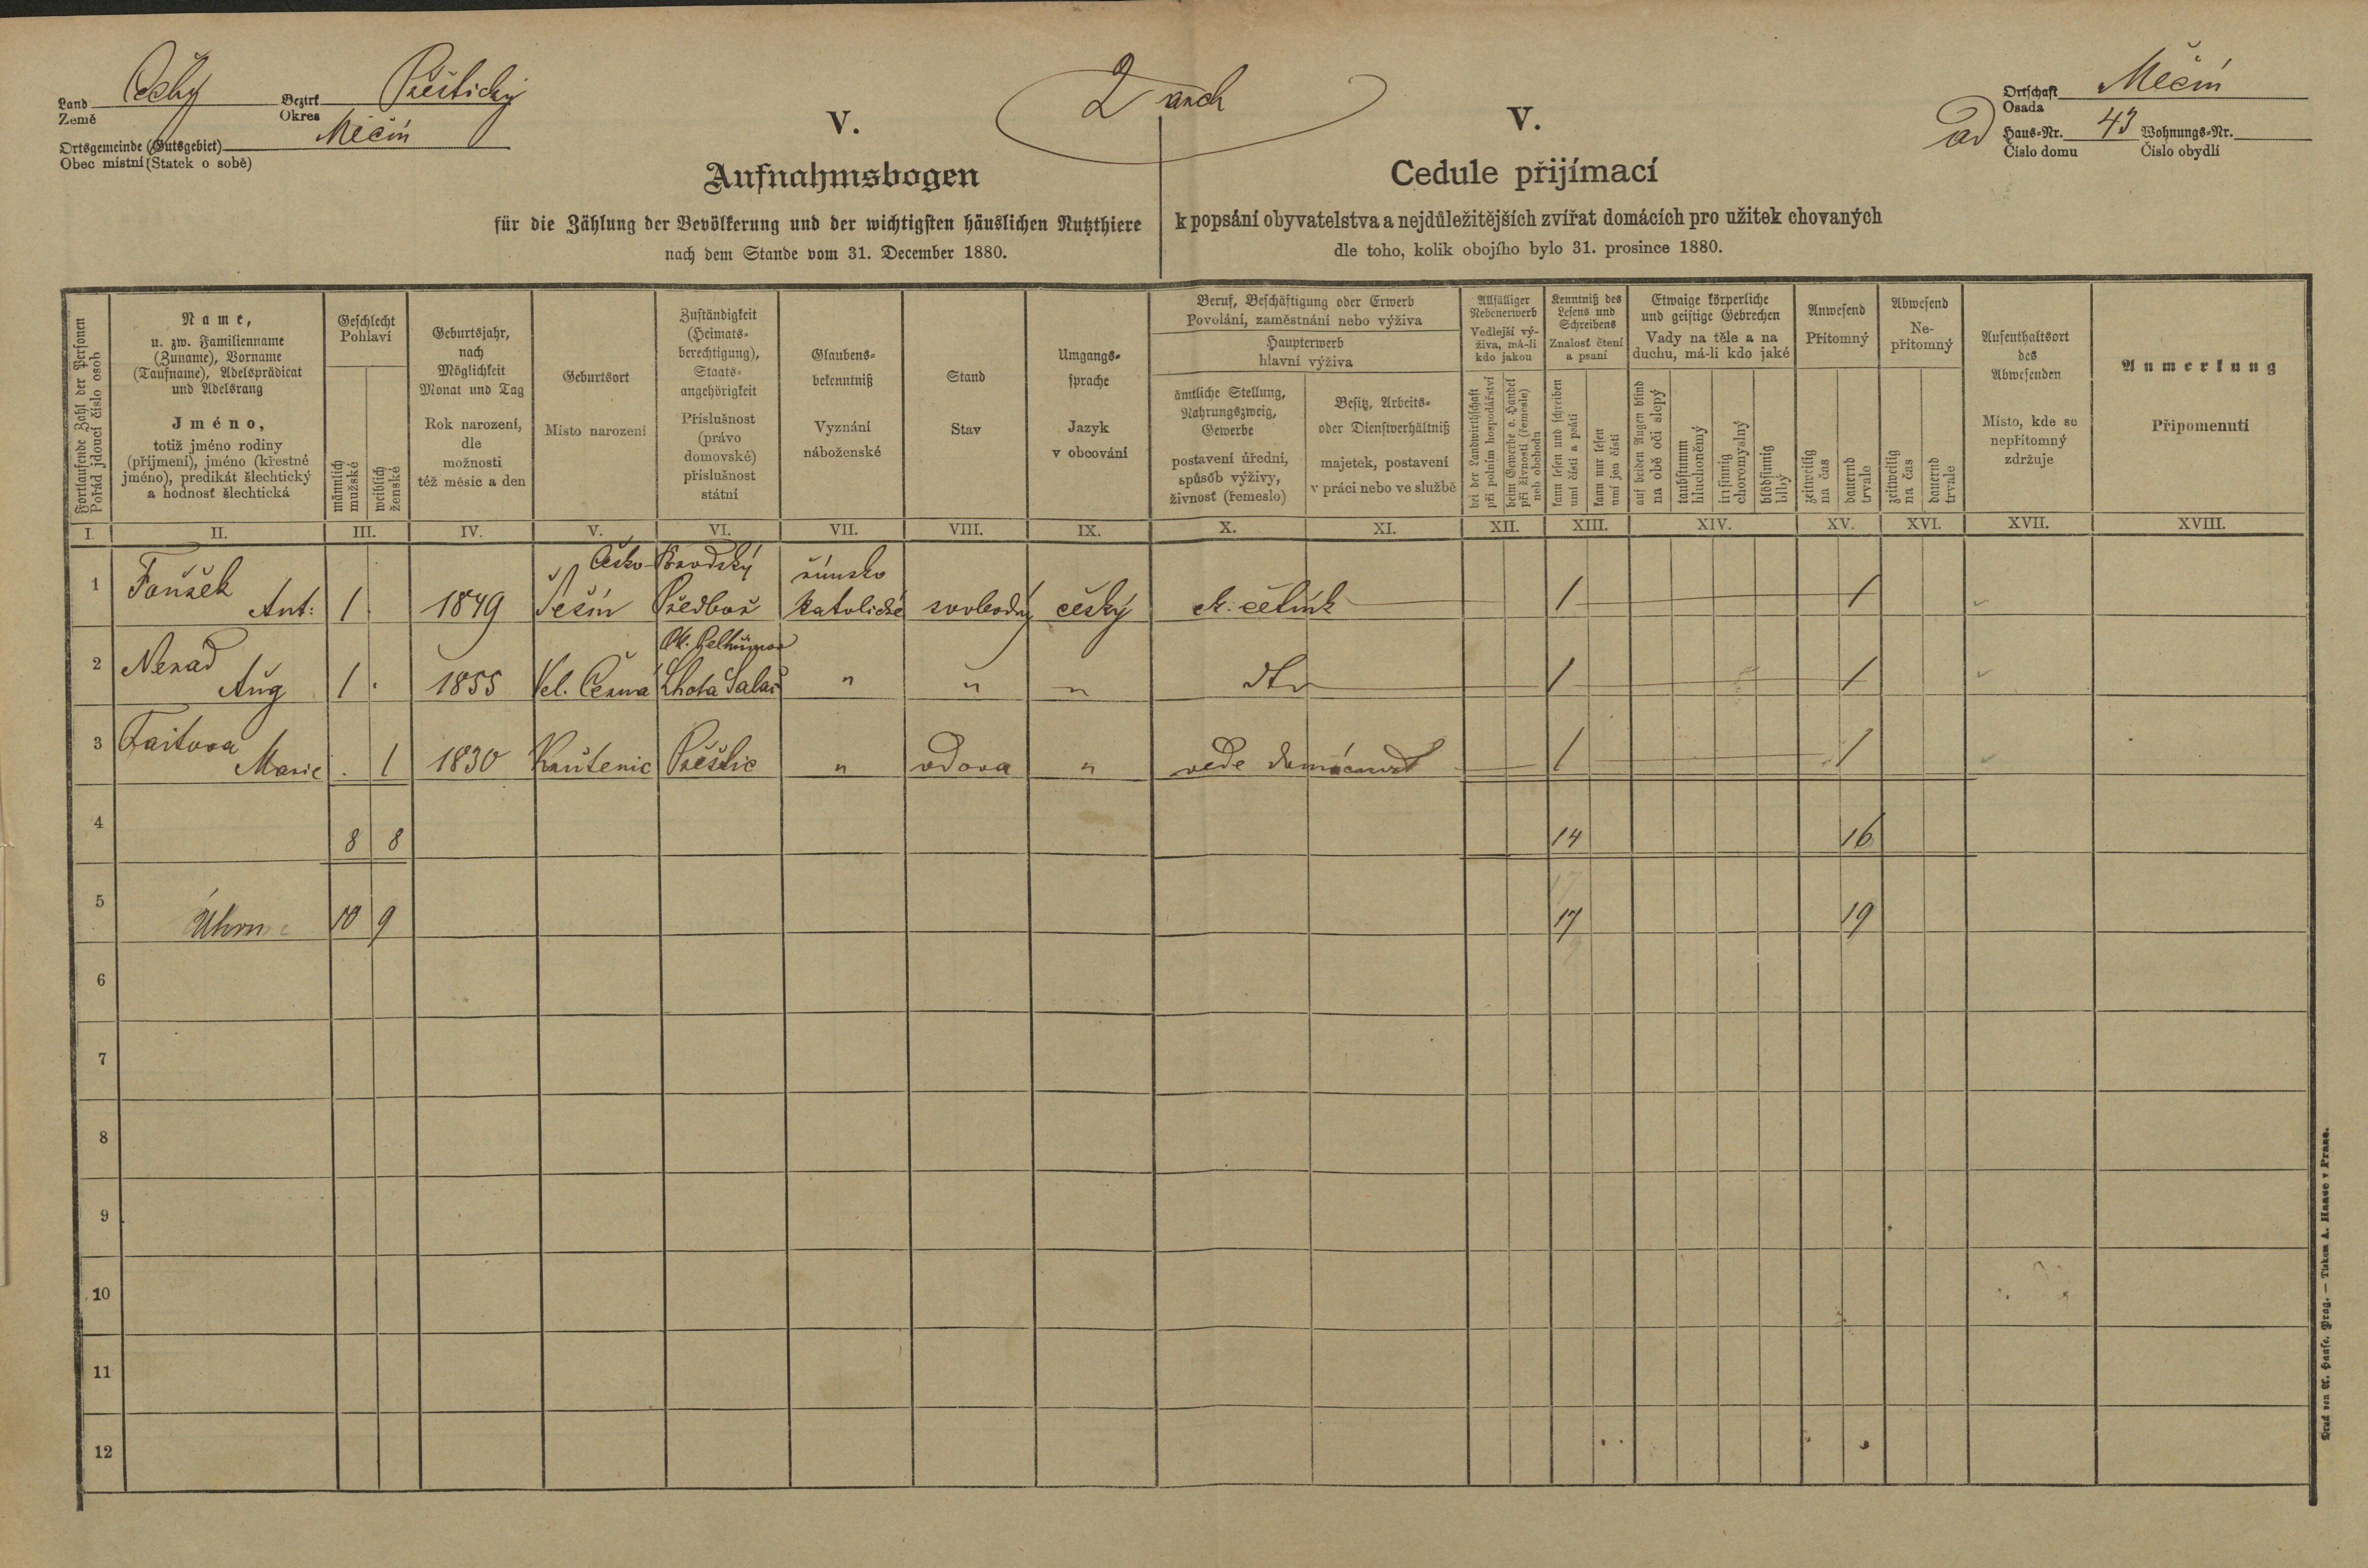 Land Čechy Bezirk Přeštický
Země Okres
Ortsgemeinde (Gutsgebiet) Měčín
Obec místní (Statek o sobě)
2 arch
Ortschaft Měčín
Osada
ad Haus-Nr. 43 Wohnungs-Nr.
Číslo domu Číslo obydlí
V.
Aufnahmsbogen
für die Zählung der Bevölkerung und der wichtigsten häuslichen Nutzthiere
nach dem Stande vom 31. December 1880.
V.
Cedule přijímací
k popsání obyvatelstva a nejdůležitějších zvířat domácích pro užitek chovaných
dle toho, kolik obojího bylo 31. prosince 1880.
Fortlaufende Zahl der Personen
Pořád jdoucí číslo osob
Name,
u. zw. Familienname
(Zuname), Vorname
(Taufname), Adelsprädicat
und Adelsrang
Jméno,
totiž jméno rodiny
(příjmení), jméno (křestné
jméno), predikát šlechtický
a hodnosť šlechtická
Geschlecht
Pohlaví
männlich
mužské
weiblich
ženské
Geburtsjahr,
nach
Möglichkeit
Monat und Tag
Rok narození,
dle
možnosti
též měsíc a den
Geburtsort
Místo narození
Zuständigkeit
(Heimats-
berechtigung),
Staats-
angehörigkeit
Příslušnost
(právo
domovské)
příslušnost
státní
Glaubens-
bekenntniß
Vyznání
náboženské
Stand
Stav
Umgangs-
sprache
Jazyk
v obcování
Beruf, Beschäftigung oder Erwerb
Povolání, zaměstnání nebo výživa
Haupterwerb
hlavní výživa
ämtliche Stellung,
Nahrungszweig,
Gewerbe
postavení úřední,
způsob výživy,
živnosť (řemeslo)
Besitz, Arbeits-
oder Dienstverhältniß
majetek, postavení
v práci nebo ve službě
Allfälliger
Nebenerwerb
Vedlejší vý-
živa, má-li
kdo jakou
bei der Landwirthschaft
při polním hospodářství
beim Gewerbe o. Handel
při živnosti (řemesle)
neb obchodu
Kenntniß des
Lesens und
Schreibens
Znalosť čtení
a psaní
kann lesen und schreiben
umí čísti a psáti
kann nur lesen
umí jen čísti
Etwaige körperliche
und geistige Gebrechen
Vady na těle a na
duchu, má-li kdo jaké
auf beiden Augen blind
na obě oči slepý
taubstumm
hluchoněmý
irrsinnig
choromyslný
blödsinnig
blbý
Anwesend
Přítomný
zeitweilig
na čas
dauernd
trvale
Abwesend
Ne-
přítomný
zeitweilig
na čas
dauernd
trvale
Aufenthaltsort
des
Abwesenden
Místo, kde se
nepřítomný
zdržuje
Anmerkung
Připomenutí
I. II. III. IV. V. VI. VII. VIII. IX. X. XI. XII. XIII. XIV. XV. XVI. XVII. XVIII.
Česko-Brodský římsko
1 Ant: 1 . 1849 Předboř katolické svobodný český četník 1 1
2 Nerad
Aug 1 . 1855 Vel. Černá Lhota Salač " " " 1 1
3 Faitova
Marie . 1 1830 Přeštic " vdova " vede domácnost 1 1
4 8 8 14 16
5 Úhrn 10 9 17 19
6
7
8
9
10
11
12
Druck von A. Haase, Prag. — Tiskem A. Haase v Praze.